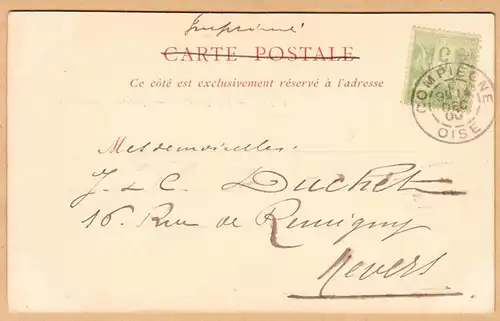 Imprimé
CARTE POSTALE
Ce côté est exclusivement réservé à l'adresse
COMPIEGNE
DEC
00
OISE
Mesdemoiselles
J. & C. Duchet
16 Rue de Remigny
Nevers